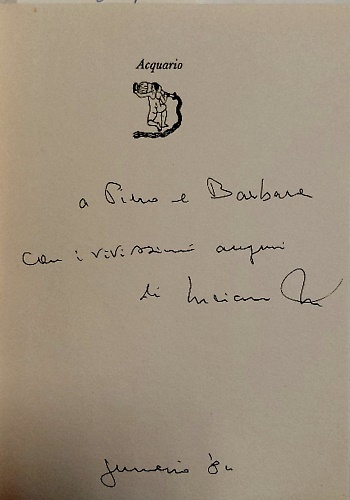 Acquario
a Piero e Barbara
con i vivissimi auguri
di Luciano
gennaio '84